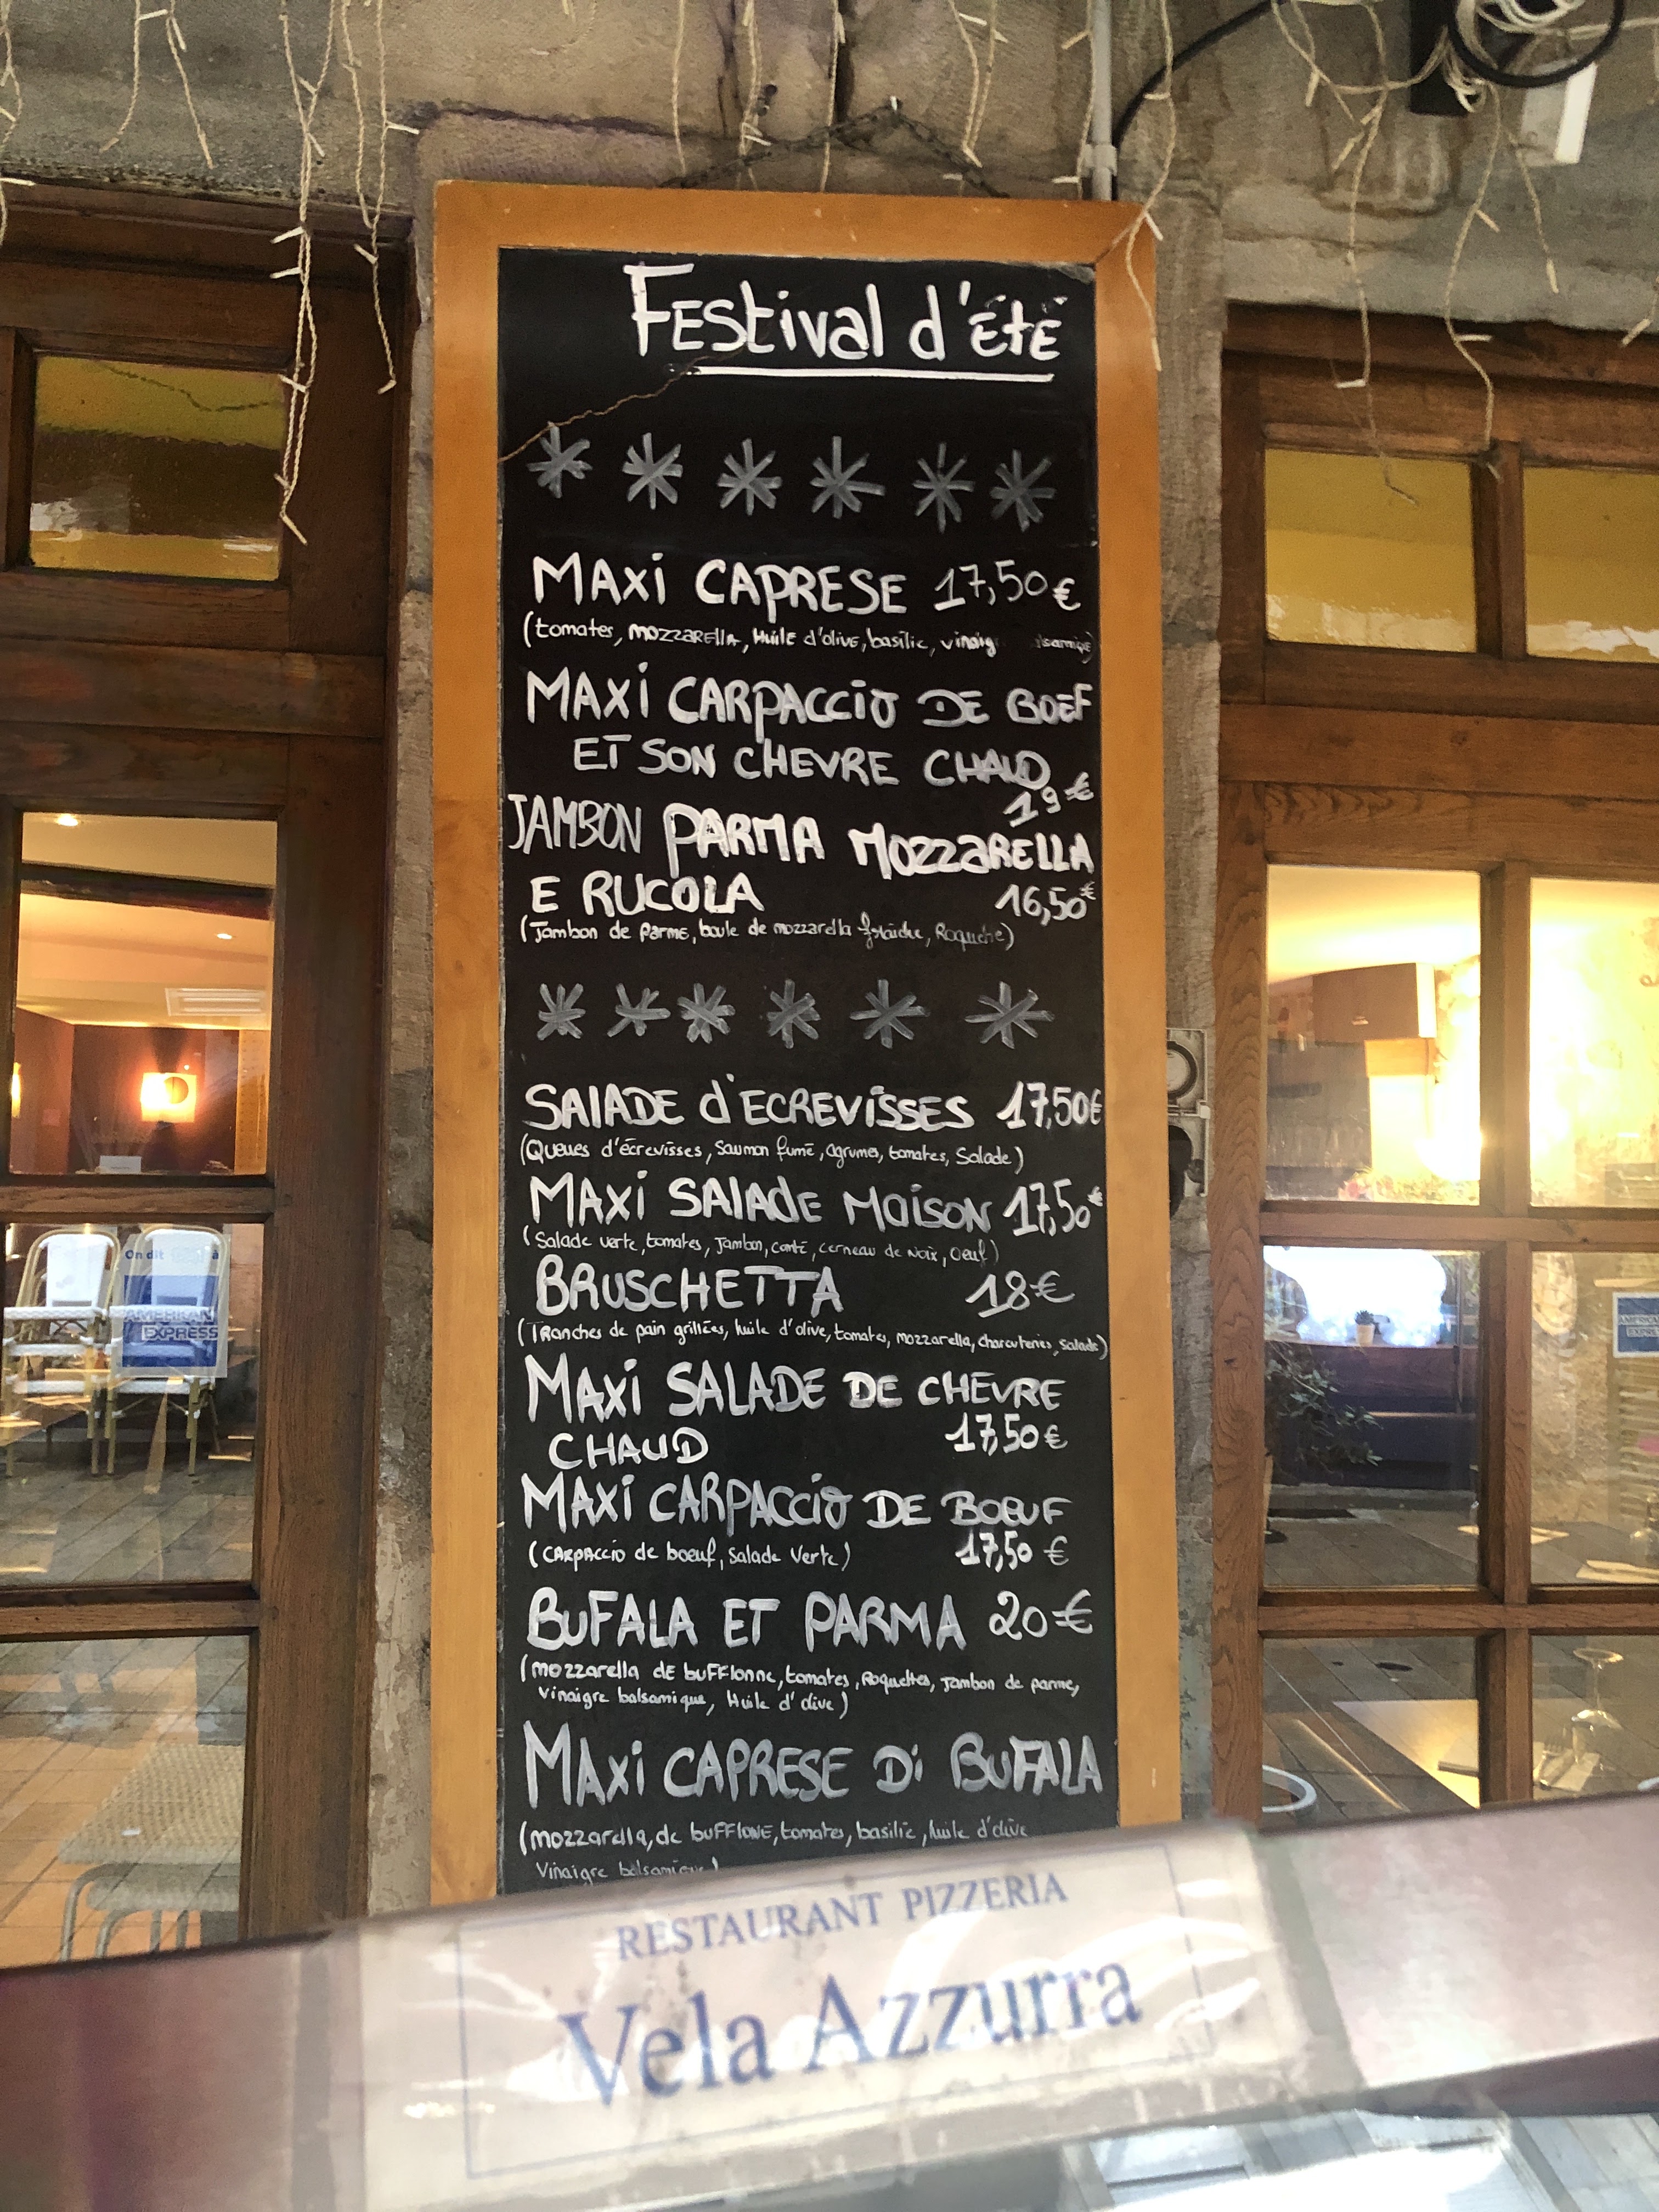 Festival d'été
MAXi CAPRESE 17,50€
(tomates, mozzarella, Huile d'olive, basilic,
MAXi CARPACCiO DE BOEF
ET SON CHEVRE CHAUD
19€
JAMBON PARMA MOZZARELLA
E RUCOLA 16,50€
(Jambon de Parme, boule de mozzarella fraîche, Roquette)
SALADE d'ECREViSSES 17,50€
(Queues d'écrevisses, Saumon fumé, agrumes, tomates, Salade)
MAXi SALADE MAiSON 17,50€
(Salade verte, tomates, Jambon, comté, cerneau de Noix, Oeuf)
BRUSCHETTA 18€
(Tranches de pain grillées, huile d'olive, tomates, mozzarella, charcuteries, Salade)
MAXi SALADE DE CHEVRE
CHAUD 17,50€
MAXi CARPACCiO DE BOEUF
(CARPACCIO de boeuf, Salade Verte) 17,50 €
BUFALA ET PARMA 20€
(mozzarella de bufflonne, tomates, Roquettes, Jambon de parme,
Vinaigre balsamique, Huile d'olive)
MAXi CAPRESE Di BUFALA
(mozzarella, de bufflone, tomates, basilic, huile d'olive
Vinaigre balsamique)
RESTAURANT PIZZERIA
Vela Azzurra
On dit à
AMERICAN
EXPRESS